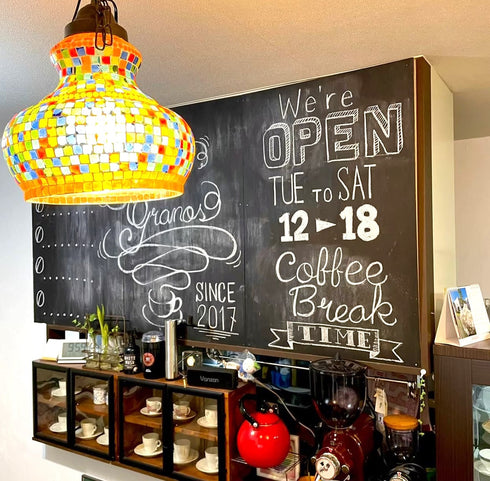 Granos
SINCE
2017
We're
OPEN
TUE TO SAT
12 ► 18
Coffee
Break
TIME